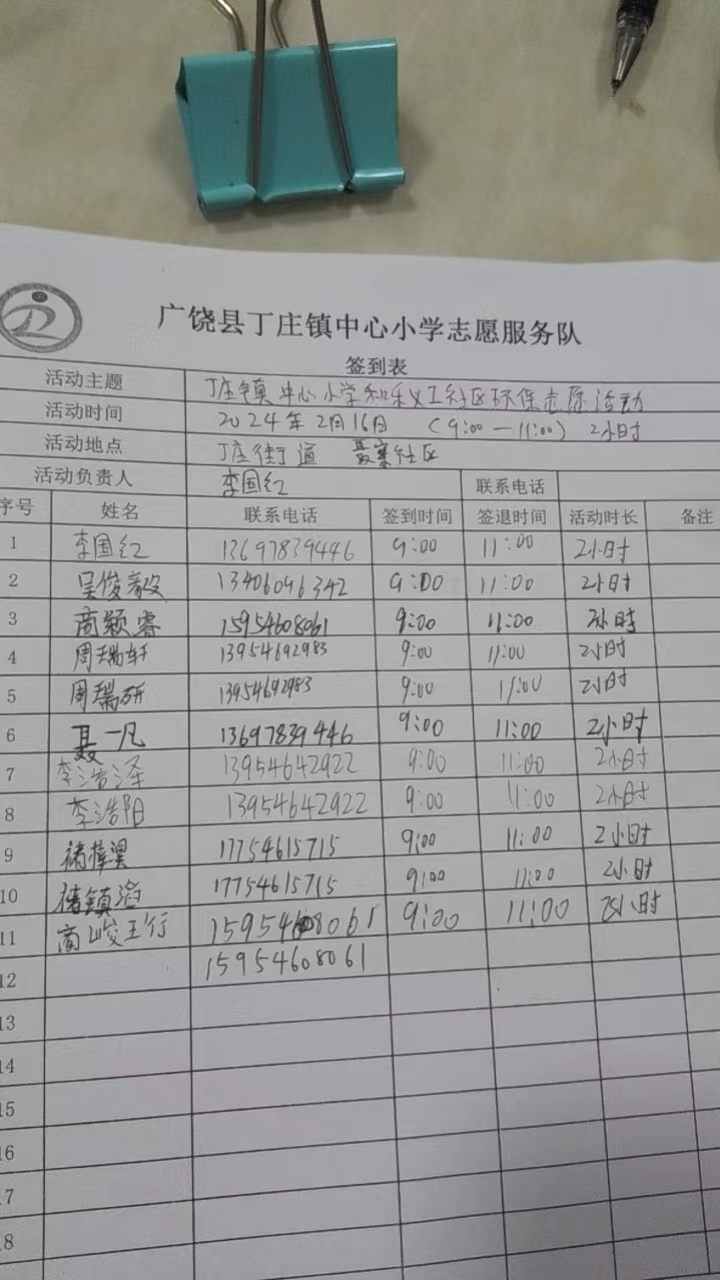 广饶县丁庄镇中心小学志愿服务队
签到表
活动主题 丁庄镇中心小学和义工社区环保志愿活动
活动时间 2024年2月16日 (9:00—11:00) 2小时
活动地点 丁庄街道 聂寨社区
活动负责人 李国红 联系电话
序号 姓名 联系电话 签到时间 签退时间 活动时长 备注
1 李国红 13697839446 9:00 11:00 2小时
2 吴俊毅 13406096342 9:00 11:00 2小时
3 商颖睿 15954608061 9:00 11:00 2小时
4 周瑞轩 13954692983 9:00 11:00 2小时
5 周瑞研 13954692983 9:00 11:00 2小时
6 聂一凡 13697839446 9:00 11:00 2小时
7 李浩泽 13954642922 9:00 11:00 2小时
8 李浩阳 13954642922 9:00 11:00 2小时
9 17754615715 9:00 11:00 2小时
10 17754615715 9:00 11:00 2小时
11 商峻珩 15954608061 9:00 11:00 2小时
12 15954608061
13
14
15
16
17
18